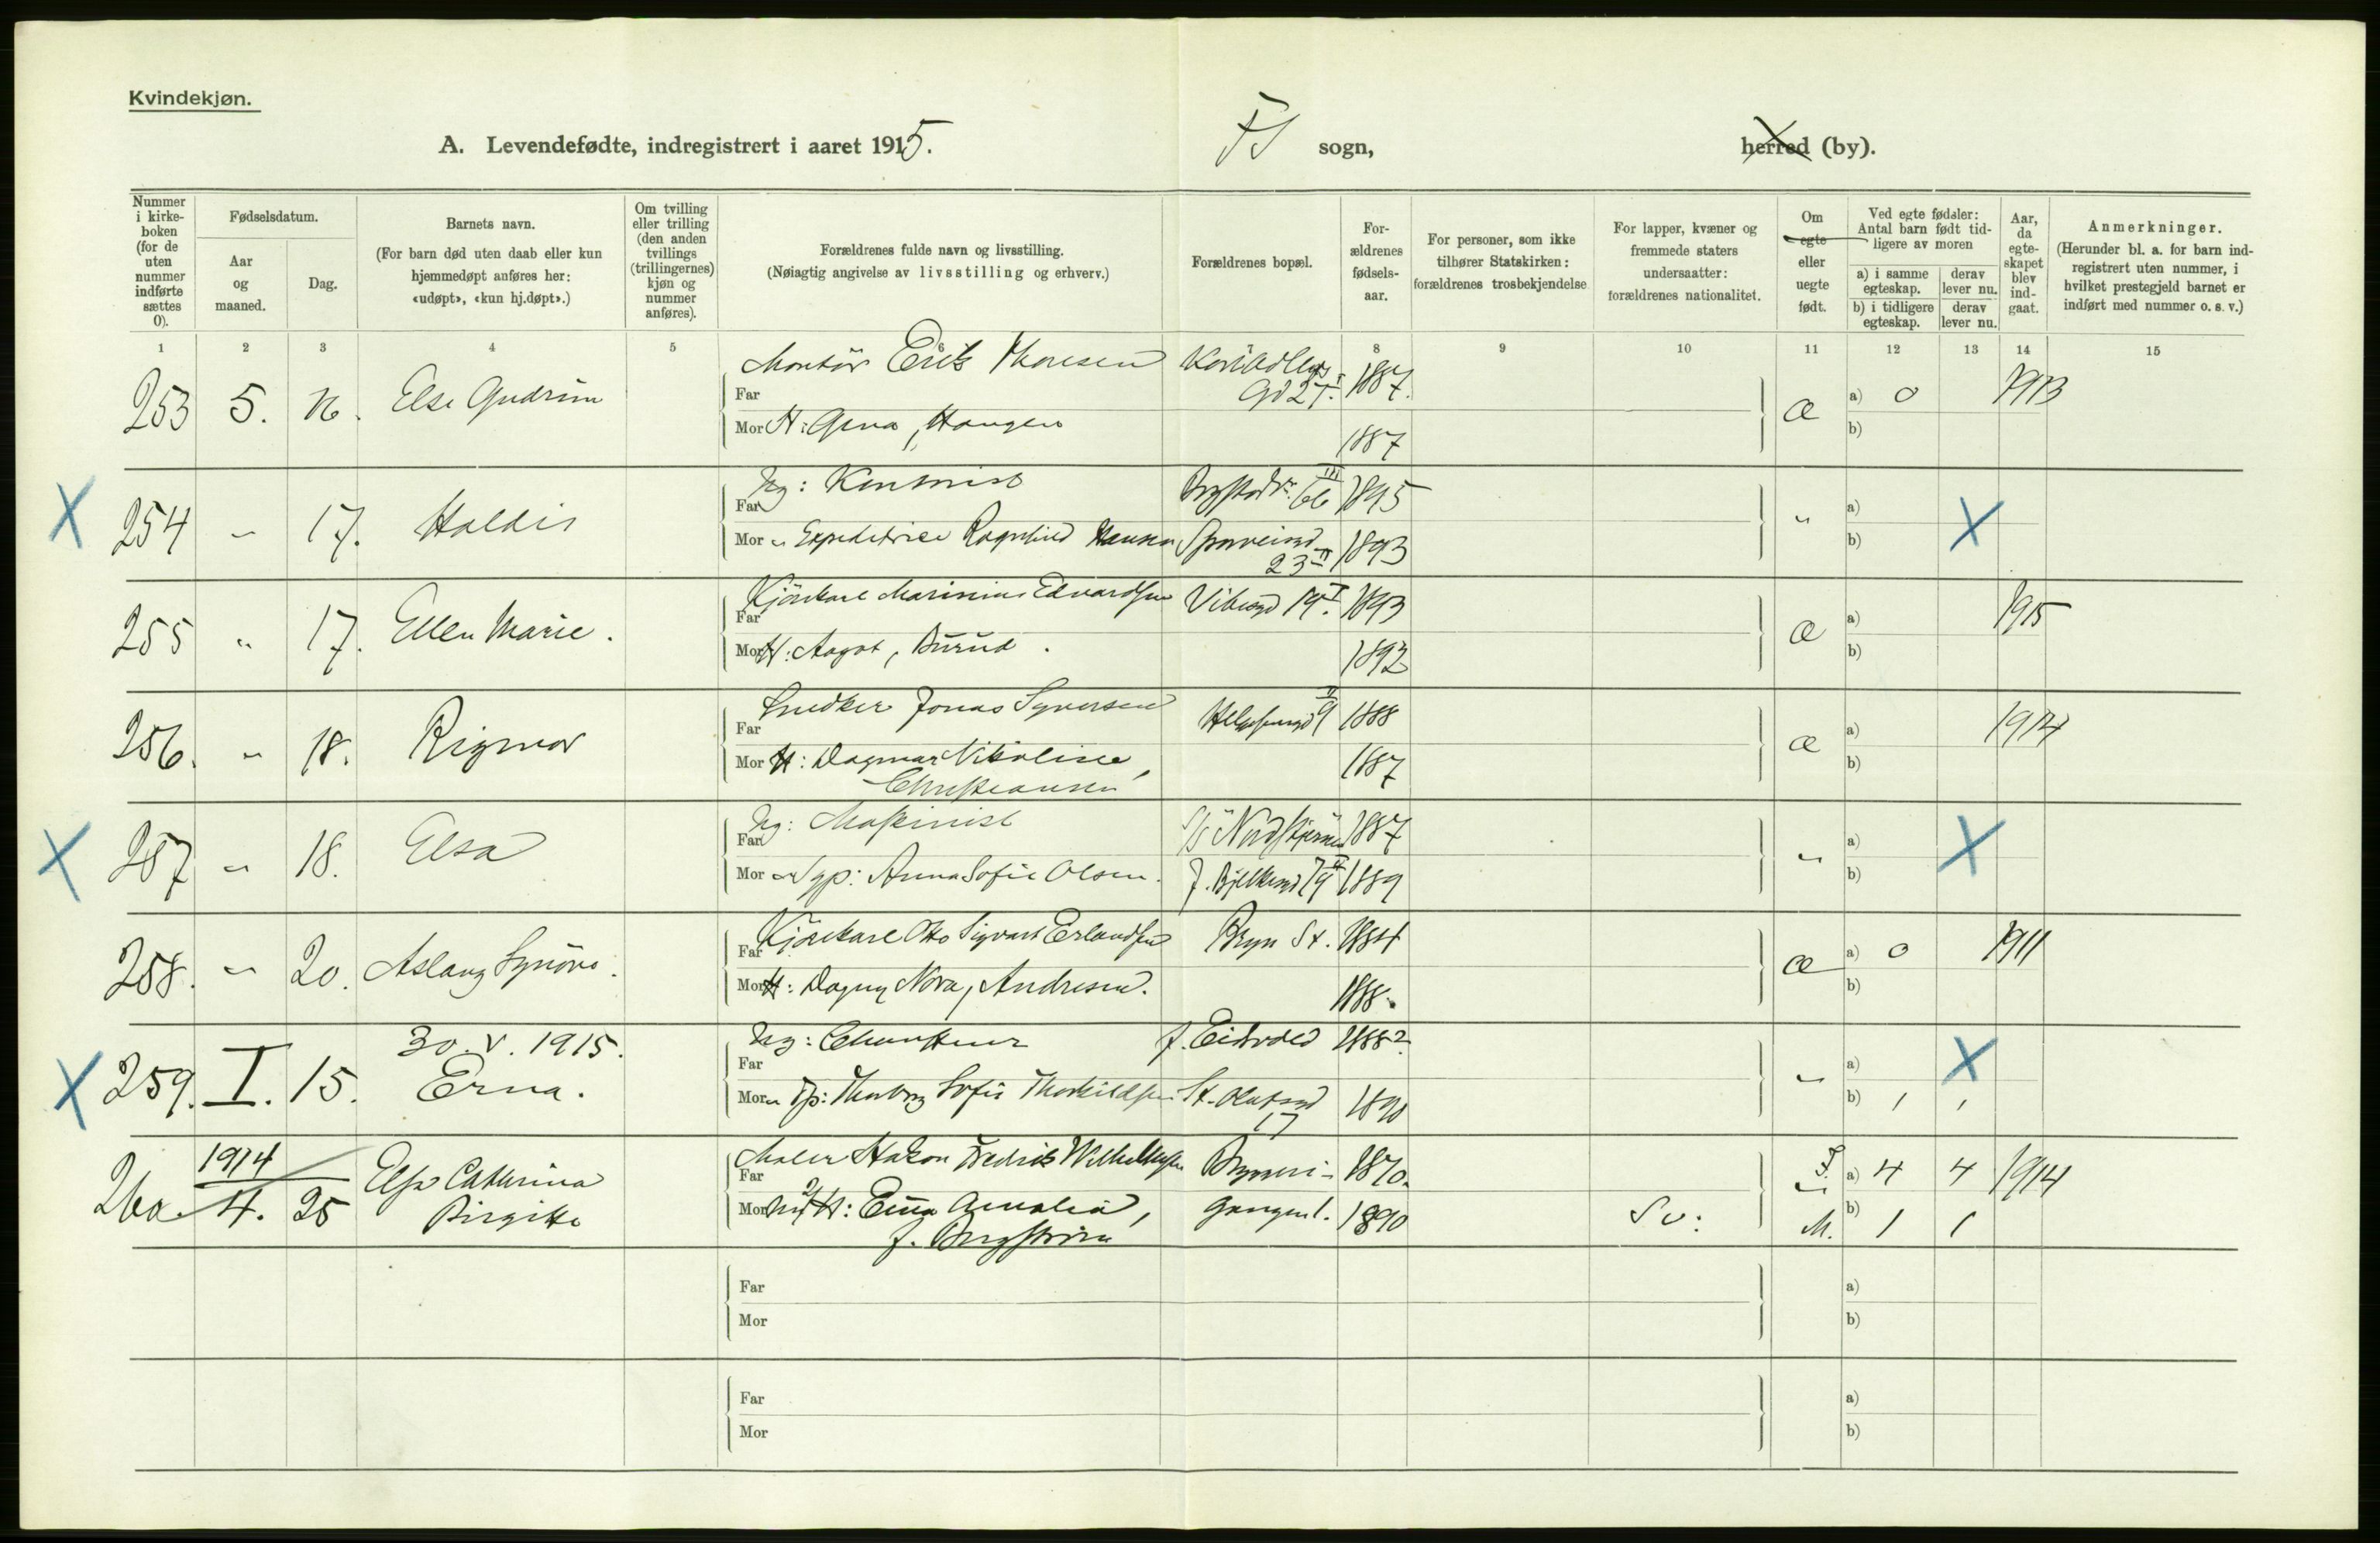 Kvindekjøn.
A. Levendefødte, indregistrert i aaret 1915. FS sogn, herred (by).
Nummer i kirke-boken (for de uten nummer indførte sættes 0).
Fødselsdatum.
Aar og maaned.
Dag.
Barnets navn.
(For barn død uten daab eller kun hjemmedøpt anføres her: «udøpt», «kun hj.døpt».)
Om tvilling eller trilling (den anden tvillings (trillingernes) kjøn og nummer anføres).
Forældrenes fulde navn og livsstilling.
(Nøiagtig angivelse av livsstilling og erhverv.)
Forældrenes bopæl.
For-ældrenes fødsels-aar.
For personer, som ikke tilhører Statskirken: forældrenes trosbekjendelse
For lapper, kvæner og fremmede staters undersaatter: forældrenes nationalitet.
Om egte eller uegte født.
Ved egte fødsler: Antal barn født tid-ligere av moren
a) i samme egteskap. derav lever nu.
b) i tidligere egteskap. derav lever nu.
Aar, da egte-skapet blev ind-gaat.
Anmerkninger.
(Herunder bl. a. for barn ind-registrert uten nummer, i hvilket prestegjeld barnet er indført med nummer o. s. v.)
1 2 3 4 5 6 7 8 9 10 11 12 13 14 15
253 5. 16. Else Gudrun
Far Montør Erik Thoresen 1887.
Mor H: Gina, Haugen 1887
Æ a) 0 1913
b)
X 254 " 17. Haldis
Far Ug: Kontorist 66 III 1895
Mor " Expeditrice Ragnhild Hansen 23 II 1893
" a) b) X
255 " 17. Ellen Marie.
Far Kjørekarl Marinius Edvardsen Vibesgd 19 I. 1893
Mor H: Aagot, Burud. 1892
Æ a) 1915
b)
256. " 18. Rigmor
Far Snedker Jonas Syversen Helgesensgd 9 II 1888
Mor H: Dagmar Nikoline, Christiansen 1887
Æ a) 1914
b)
X 257 " 18. Elsa
Far Ug: Maskinist S/S "Nordstjernen" 1887
Mor " Syp: Anna Sofie Olsen. J. Bjelkesgd 79 II 1889
" a) b) X
258. " 20. Aslaug Synøve.
Far Kjørekarl Otto Sigvart Erlandsen Bryn St. 1884
Mor H: Dagny Nora, Andresen. 1888.
Æ a) 0 1911
b)
X 259. I. 15. 30. V. 1915. Erna.
Far Ug: Chauffeur f. Eidsvold 1888?
Mor " Tjp: Thorborg Sofie Thorkildsen St. Olafsgd 17 1890
" a) X
b) 1 1
260 1914 4. 25 Elsa Cathrina Birgitte
Far Maler Hakon Fredrik Wilhelmsen Bryneri- 1870.
Mor H: Emma Amalia, f. Bergstrøm gangen 1. 1890
Sv:
F. a) 4 4 1914
M. b) 1 1
Far a)
Mor b)
Far a)
Mor b)